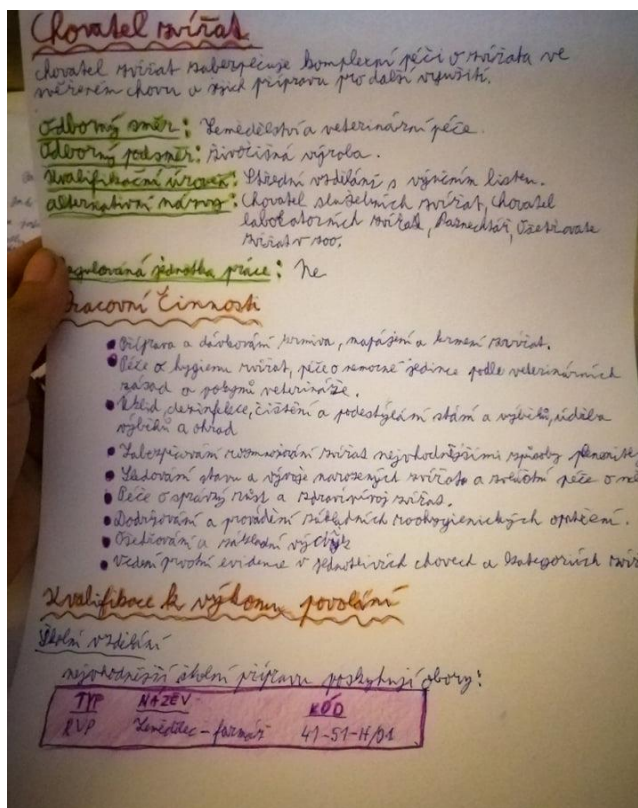 Chovatel zvířat
chovatel zvířat zabezpečuje komplexní péči o zvířata ve
svěřeném chovu a jejich přípravu pro další využití.
Odborný směr: Zemědělství a veterinární péče.
Odborný podsměr: živočišná výroba.
Kvalifikační úroveň: Střední vzdělání s výučním listem.
alternativní názvy: Chovatel služebních zvířat, Chovatel
laboratorních zvířat, Bažnechtář, Ošetřovate
zvířat v zoo.
Regulovaná jednotka práce: Ne
Pracovní činnosti
• Příprava a dávkování krmiva, napájení a krmení zvířat.
• Péče o hygienu zvířat, péče o nemocné jedince podle veterinárních
zásad a pokynů veterináře.
• Úklid, dezinfekce, čištění a podestýlání stání a výběhů, údržba
výběhů a ohrad
• Zabezpečování rozmnožování zvířat nejvhodnějšími způsoby plemenite
• Sledování stavu a vývoje narozených zvířat a zvláštní péče o ně
• Péče o správný růst a zdravý vývoj zvířat.
• Dodržování a provádění základních zoohygienických opatření.
• Ošetřování a základní výcvik
• Vedení prvotní evidence v jednotlivých chovech a kategoriích zvíř
Kvalifikace k výkonu povolání
Školní vzdělání
nejvhodnější školní přípravu poskytují obory:
TYP NÁZEV KÓD
RVP Zemědělec - farmář 41-51-H/01